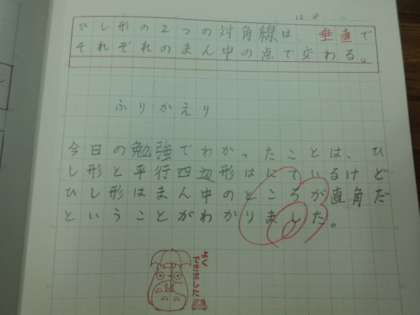 ひし形の2つの対角線は、垂直で
それぞれのまん中の点で交わる。
ふりかえり
今日の勉強でわかったことは、ひ
し形と平行四辺形はにているけど
ひし形はまん中のところが直角だ
ということがわかりました。